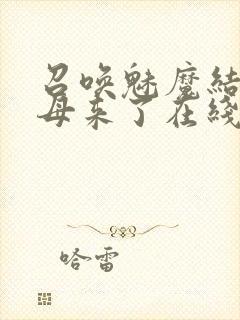 召唤魅魔结
母来了在綫
哈雷